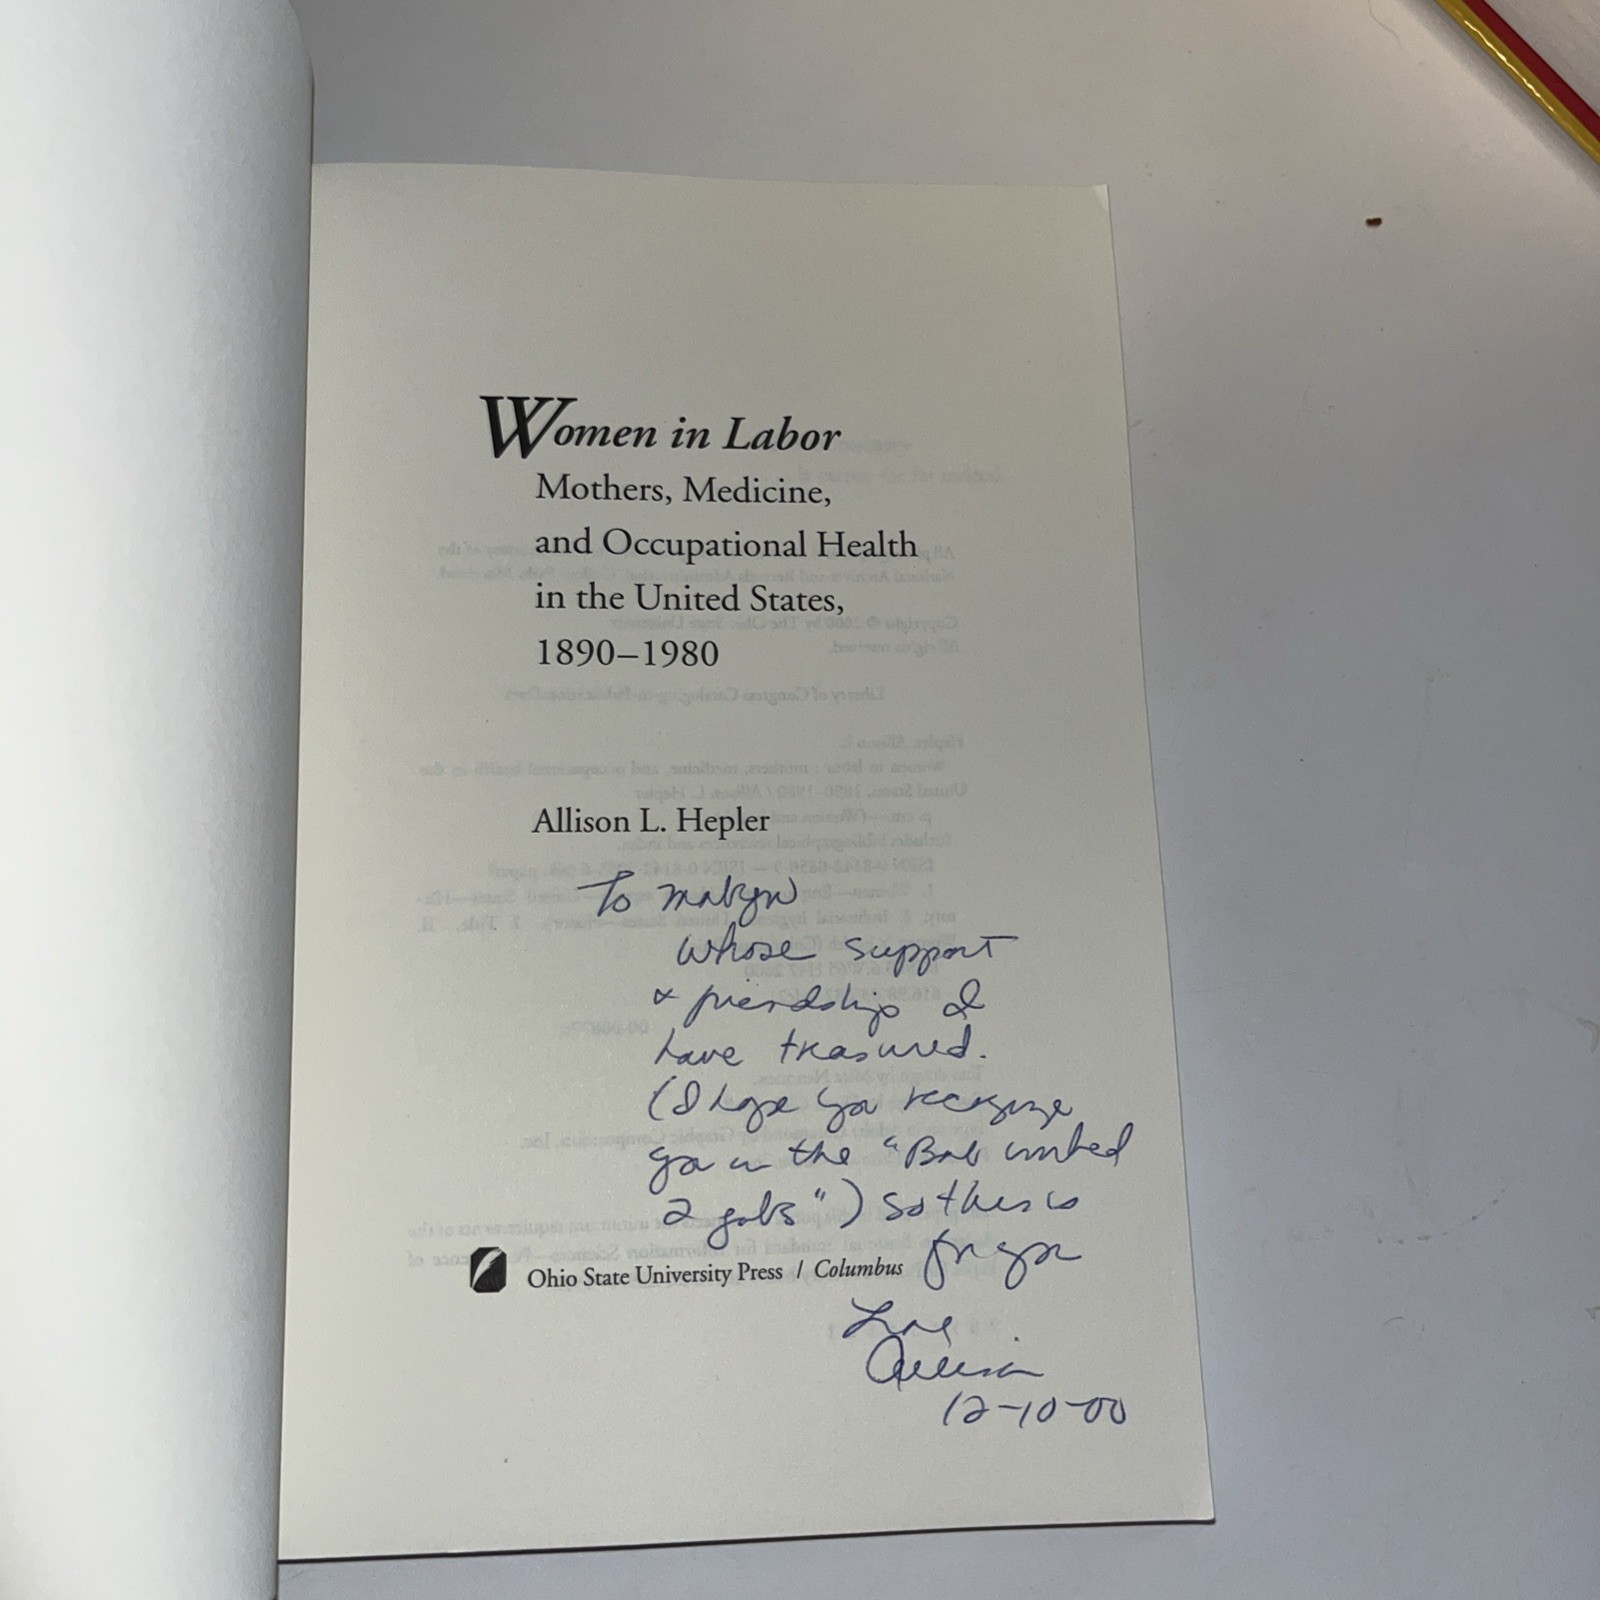 Women in Labor
Mothers, Medicine,
and Occupational Health
in the United States,
1890–1980
Allison L. Hepler
To
whose support
& friendship I
have treasured.
(I hope you recognize
you in the "Bob worked
2 jobs") So this is
for you
Ohio State University Press / Columbus
Love,
Allison
12-10-00